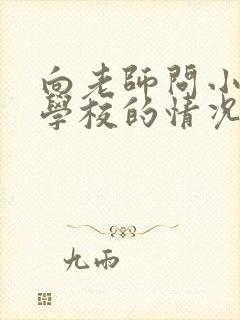 向老師問小
學校的情況
九雨